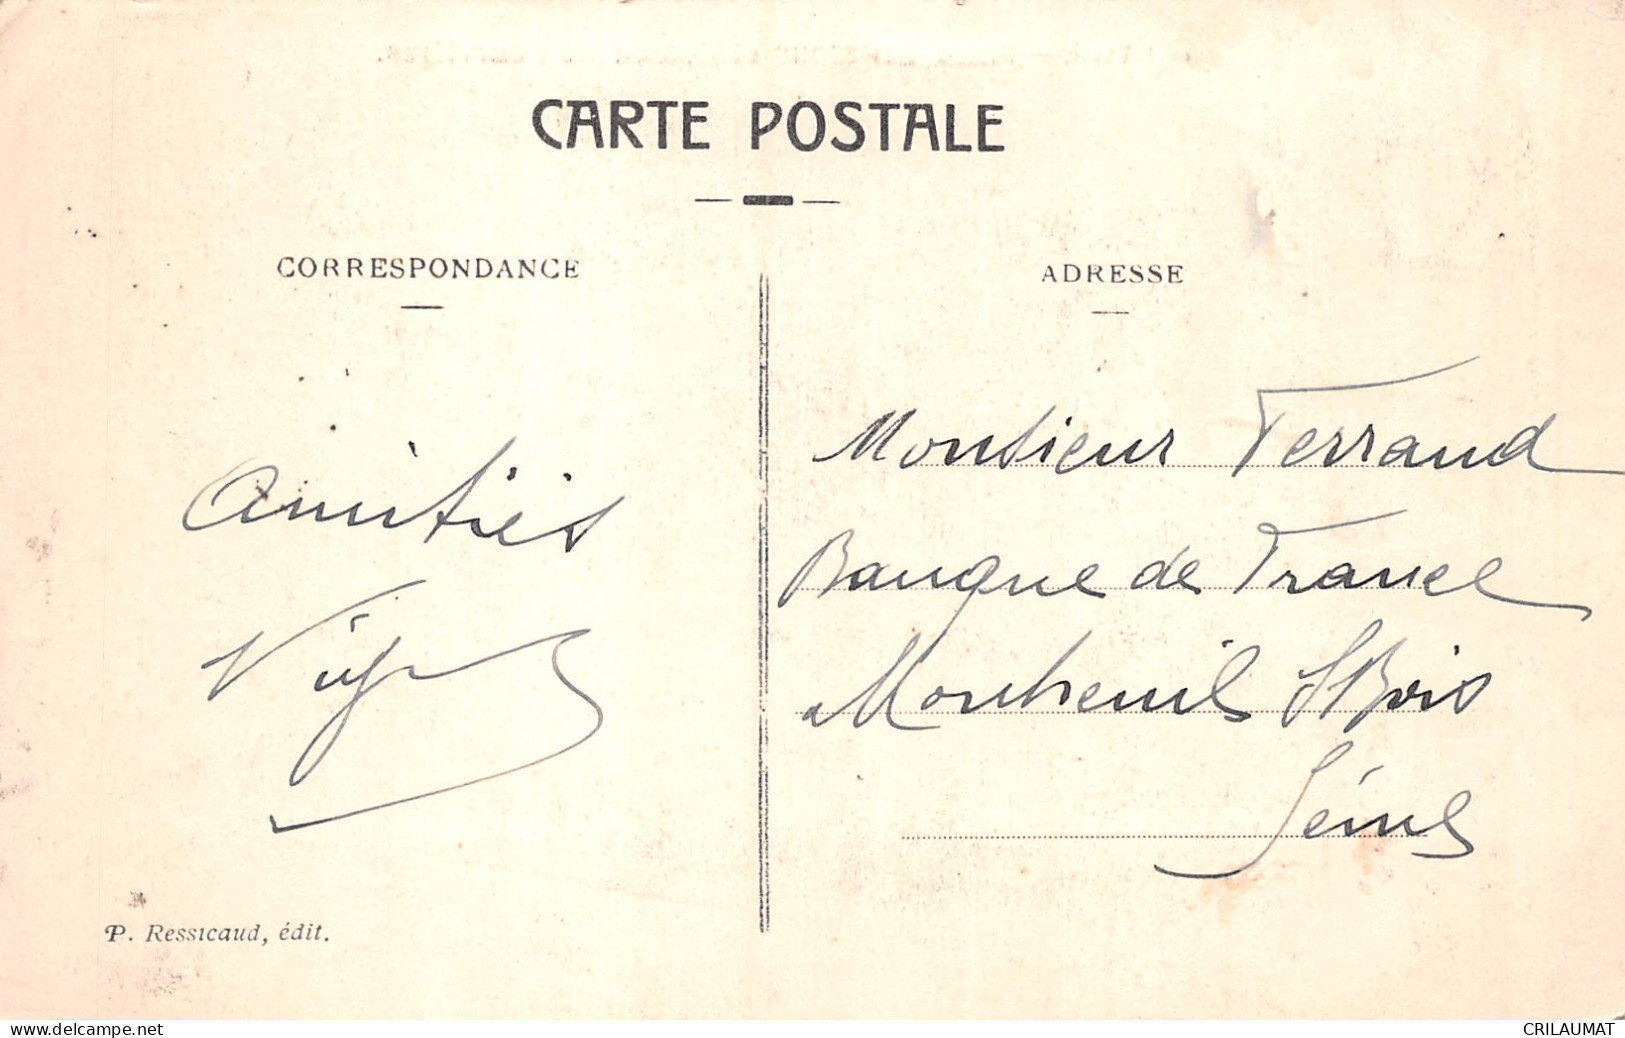 CARTE POSTALE
CORRESPONDANCE
Amitiés
P. Ressicaud, édit.
ADRESSE
Monsieur Ferrand
Banque de France
Montreuil S/Bois
Seine
www.delcampe.net
CRILAUMAT